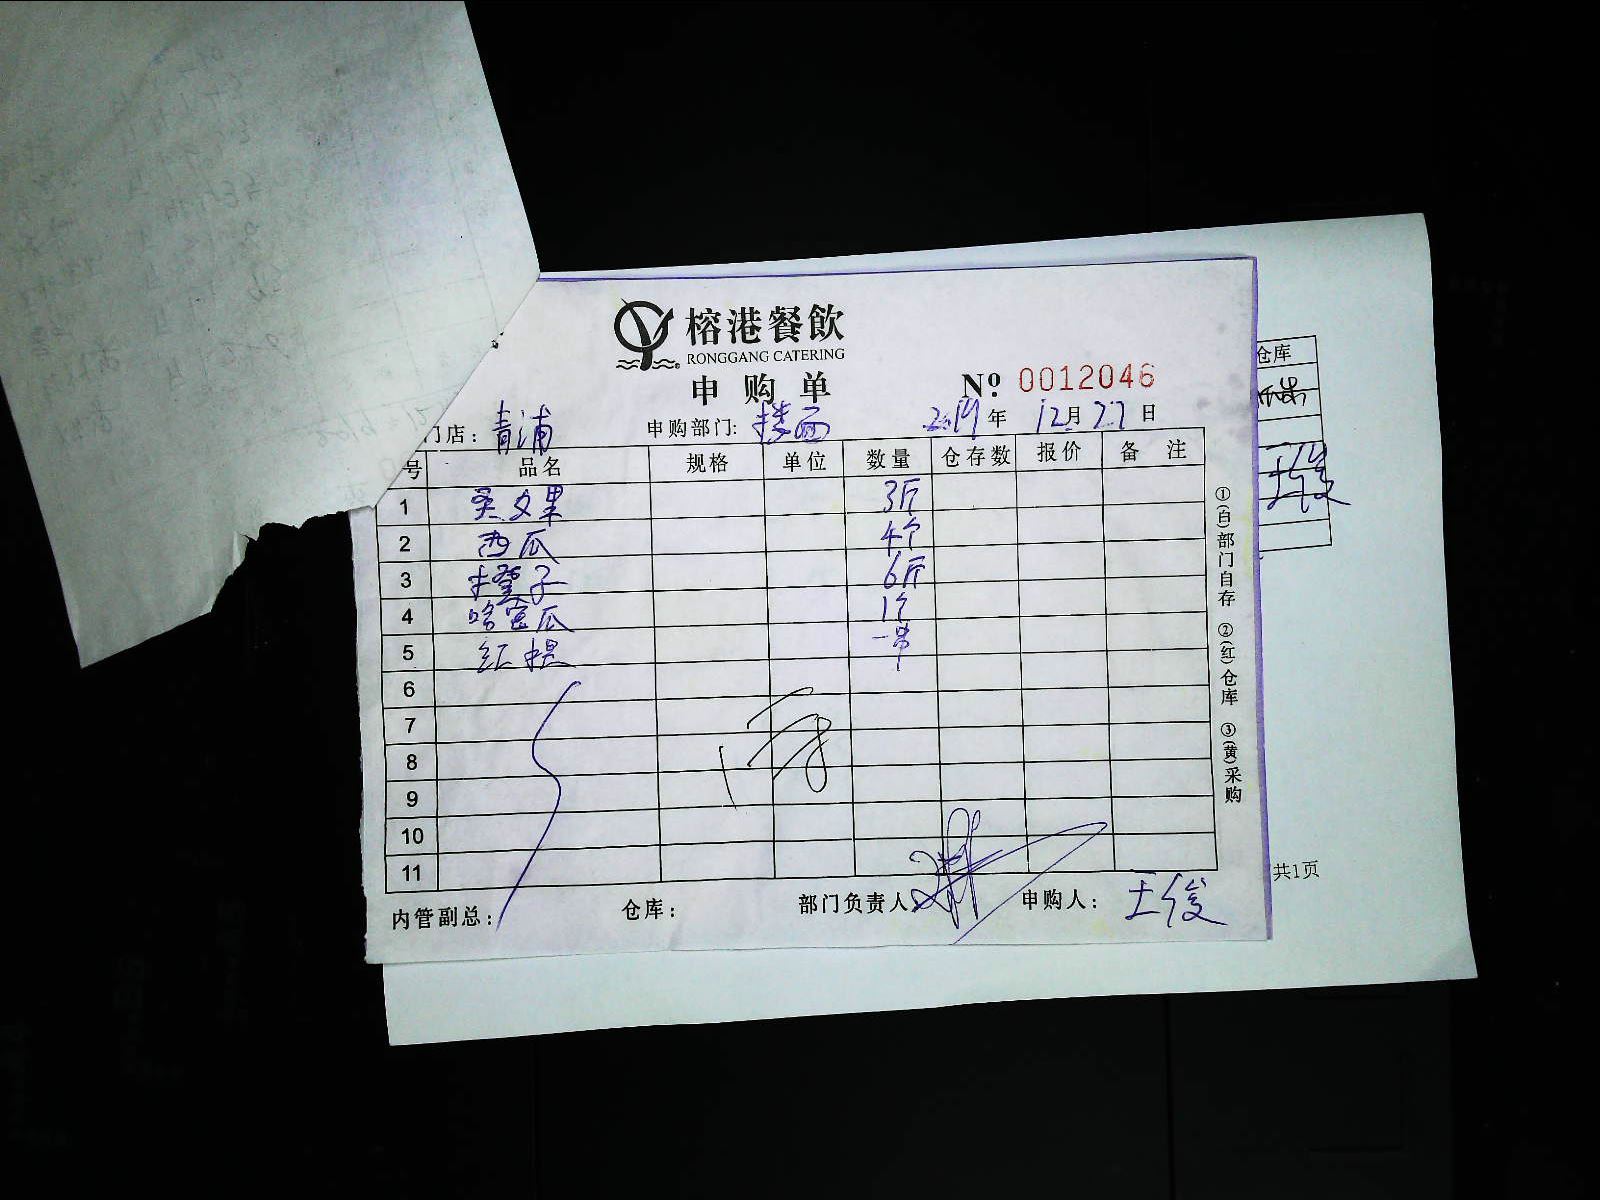 榕港餐飲
RONGGANG CATERING
申购单 Nº 0012046
门店：青浦 申购部门：楼面 2019年 12月27日
号 品名 规格 单位 数量 仓存数 报价 备注
1 火龙果 3斤
2 西瓜 4个
3 橙子 6斤
4 哈密瓜 1个
5 红提 一串
6
7
8
9
10
11
内管副总： 仓库： 部门负责人 申购人：王俊
①(白)部门自存 ②(红)仓库 ③(黄)采购
仓库
王俊
共1页